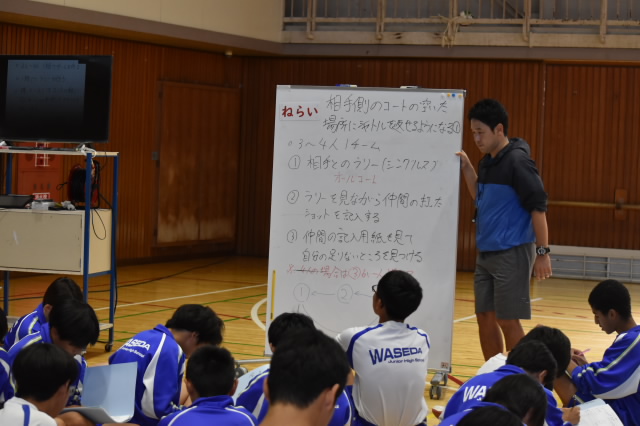 ねらい 相手側のコートの空いた
場所にシャトルを返せるようになる①
○3～4人1チーム
① 相手とのラリー(シングルス)
オールコート
② ラリーを見ながら仲間の打った
ショットを記入する
③ 仲間の記入用紙を見て
自分の足りないところを見つける
① ②
WASEDA
Junior High School
WASEDA